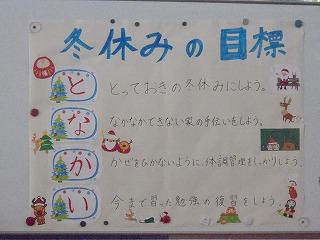 冬休みの目標
と
とっておきの冬休みにしよう。
な
なかなかできない家の手伝いをしよう。
か
かぜをひかないように、体調管理をしっかりしよう。
い
今まで習った勉強の復習をしよう。